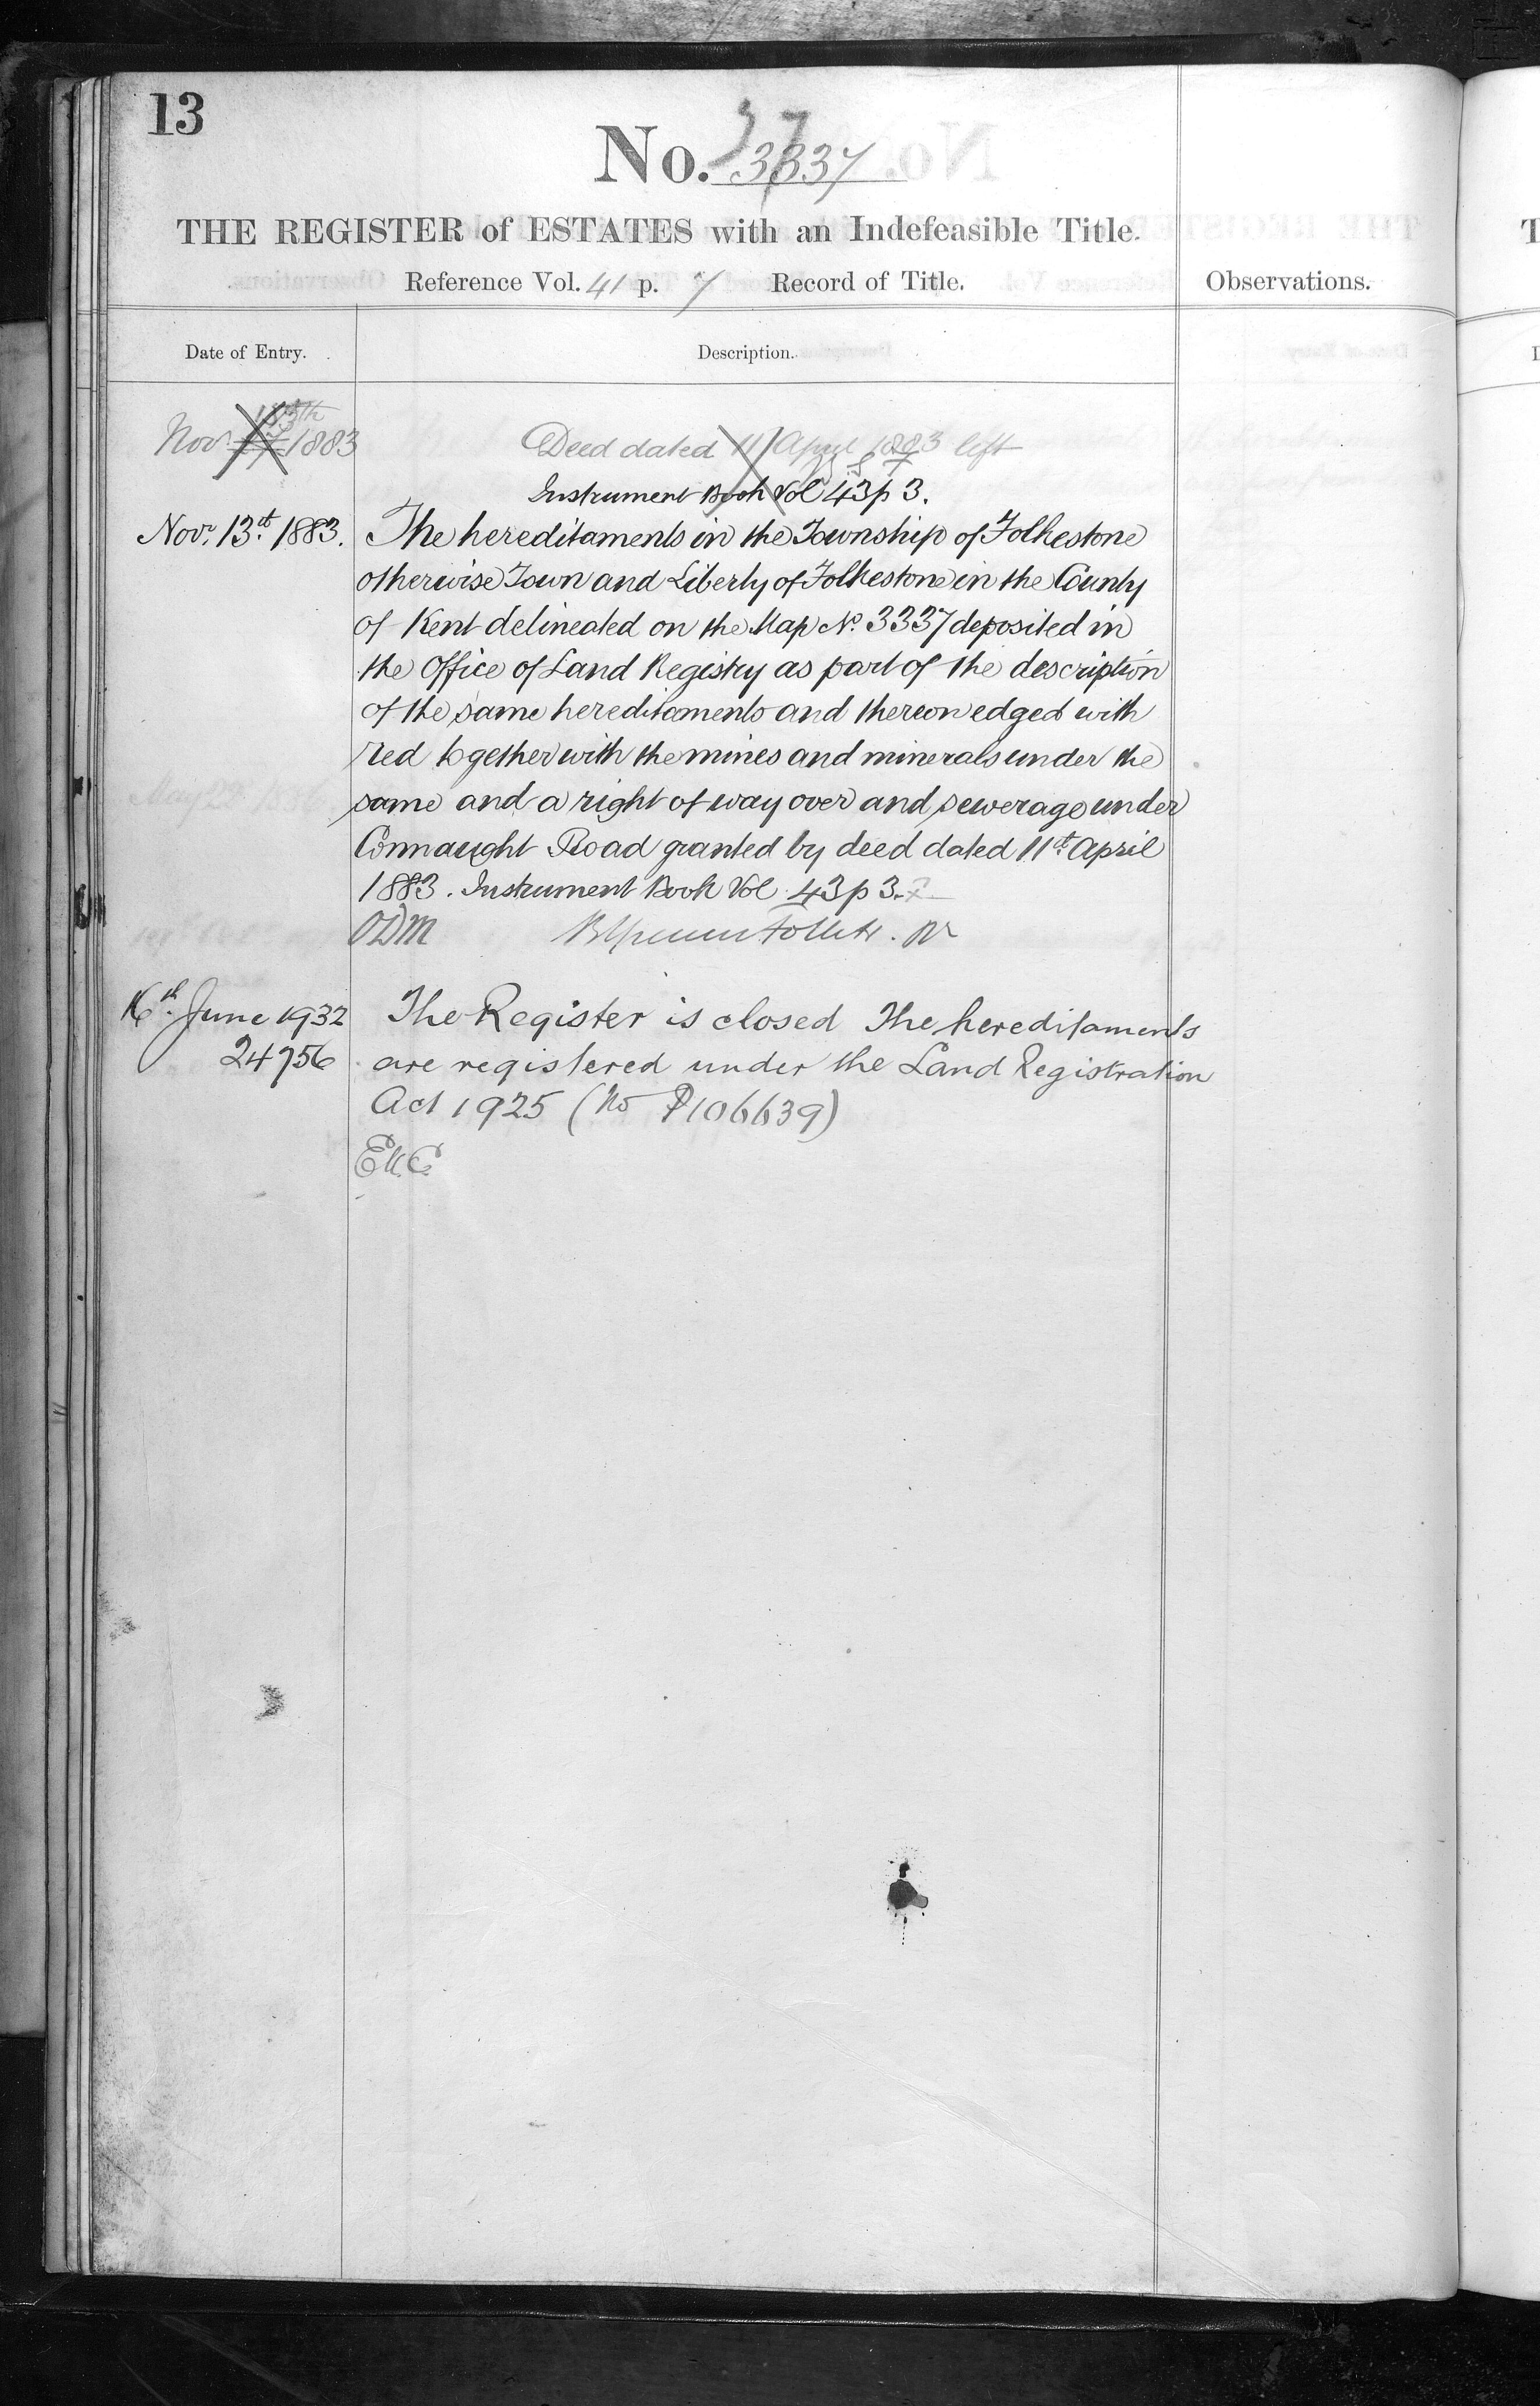 13
No. 3337
37
THE REGISTER of ESTATES with an Indefeasible Title.
Reference Vol. 41 p. 7 Record of Title.
Observations.
Date of Entry.
Description.
Nov. 13th 1883
Deed dated 11 April 1883 left
Instrument Book Vol 43 p 3.
Nov. 13th. 1883. The hereditaments in the Township of Folkestone
otherwise Town and Liberty of Folkestone in the County
of Kent delineated on the Map No. 3337 deposited in
the Office of Land Registry as part of the description
of the same hereditaments and thereon edged with
red together with the mines and minerals under the
same and a right of way over and sewerage under
Connaught Road granted by deed dated 11th April
1883. Instrument Book Vol 43 p 3.
ODM Follett. R
16th June 1932 The Register is closed The hereditaments
24756 are registered under the Land Registration
Act 1925 (No P106639)